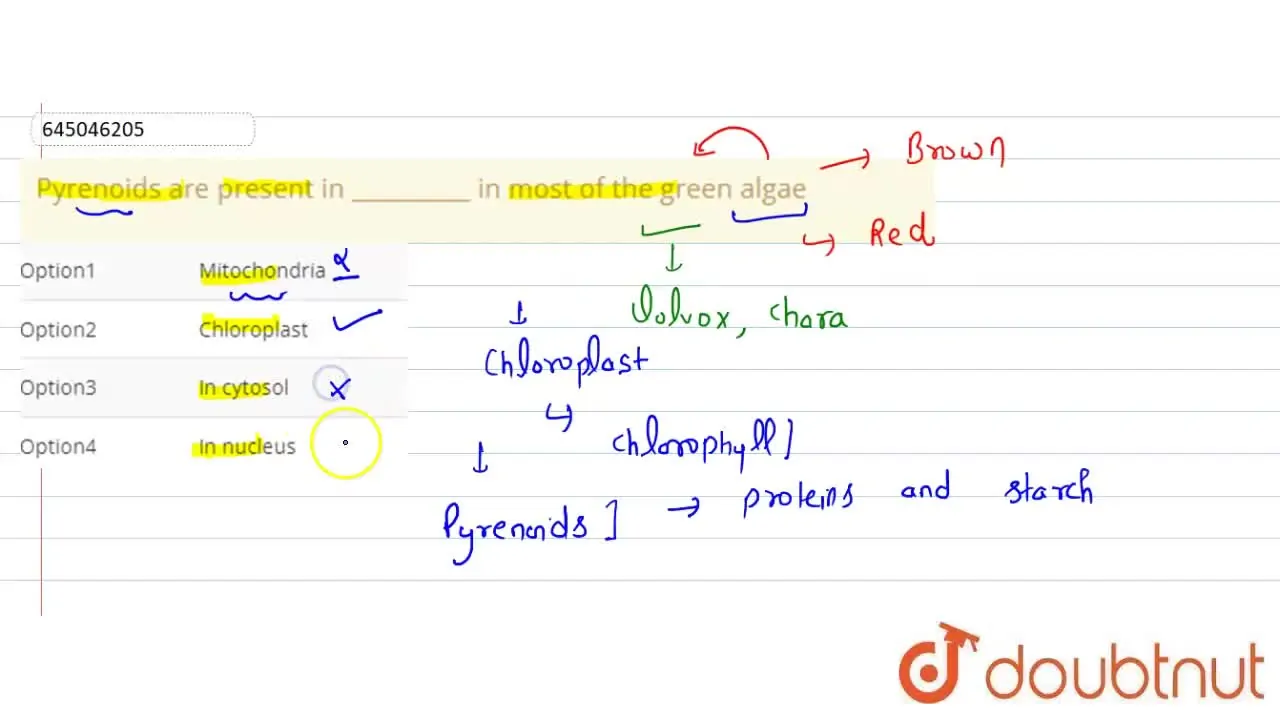 645046205
Pyrenoids are present in __________ in most of the green algae
Brown
Red
Option1 Mitochondria x
Option2 Chloroplast ✓
Option3 In cytosol x
Option4 In nucleus
Volvox, Chara
Chloroplast
Chlorophyll]
Pyrenoids] → proteins and starch
doubtnut